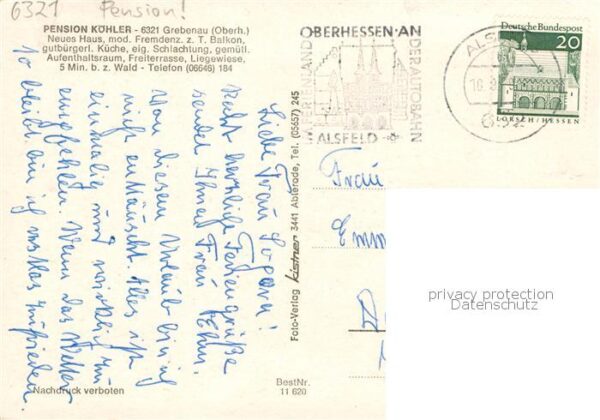 6321 Pension!
PENSION KÖHLER - 6321 Grebenau (Oberh.)
Neues Haus, mod. Fremdenz. z. T. Balkon,
gutbürgerl. Küche, eig. Schlachtung, gemütl.
Aufenthaltsraum, Freiterrasse, Liegewiese,
5 Min. b. z. Wald - Telefon (06646) 184
OBERHESSEN·AN
DER AUTOBAHN
ALSFELD
Deutsche Bundespost
20
LORSCH/HESSEN
Liebe Frau
herzliche Feriengrüße
sendet Ihnen Frau
Von diesem Urlaub bin ich
nicht enttäuscht. Alles ist
einmalig und wirklich zu
empfehlen. Wenn das Wetter
so bleibt bin ich restlos zufrieden
Frau
Foto-Verlag Kistner 3441 Abterode, Tel. (05657) 245
privacy protection
Datenschutz
Nachdruck verboten
BestNr.
11 620